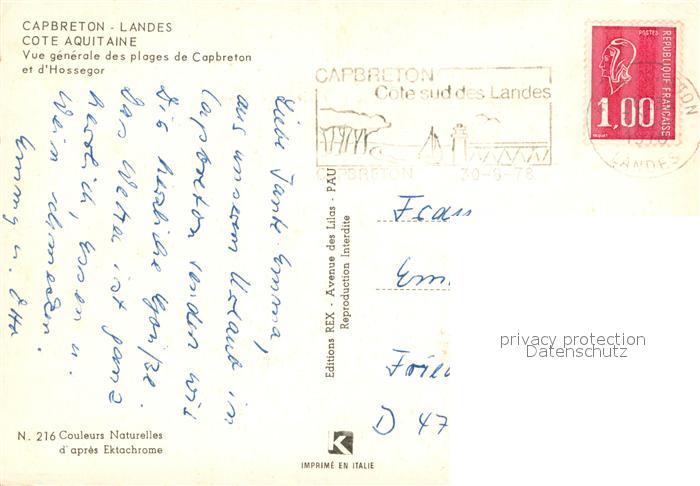 CAPBRETON - LANDES
COTE AQUITAINE
Vue générale des plages de Capbreton
et d'Hossegor
CAPBRETON
Côte sud des Landes
CAPBRETON 30-6-76
POSTES
REPUBLIQUE FRANÇAISE
1,00
Liebe Tante Emma,
aus unserem Urlaub in
Capbreton senden wir
Dir herzliche Grüße.
Das Wetter ist ganz
herrlich, Essen u.
Wein schmecken.
Emmy u. Otto
Editions REX - Avenue des Lilas - PAU
Reproduction Interdite
Frau
Em
Frie
D 47
privacy protection
Datenschutz
N. 216 Couleurs Naturelles
d'après Ektachrome
K
IMPRIMÉ EN ITALIE